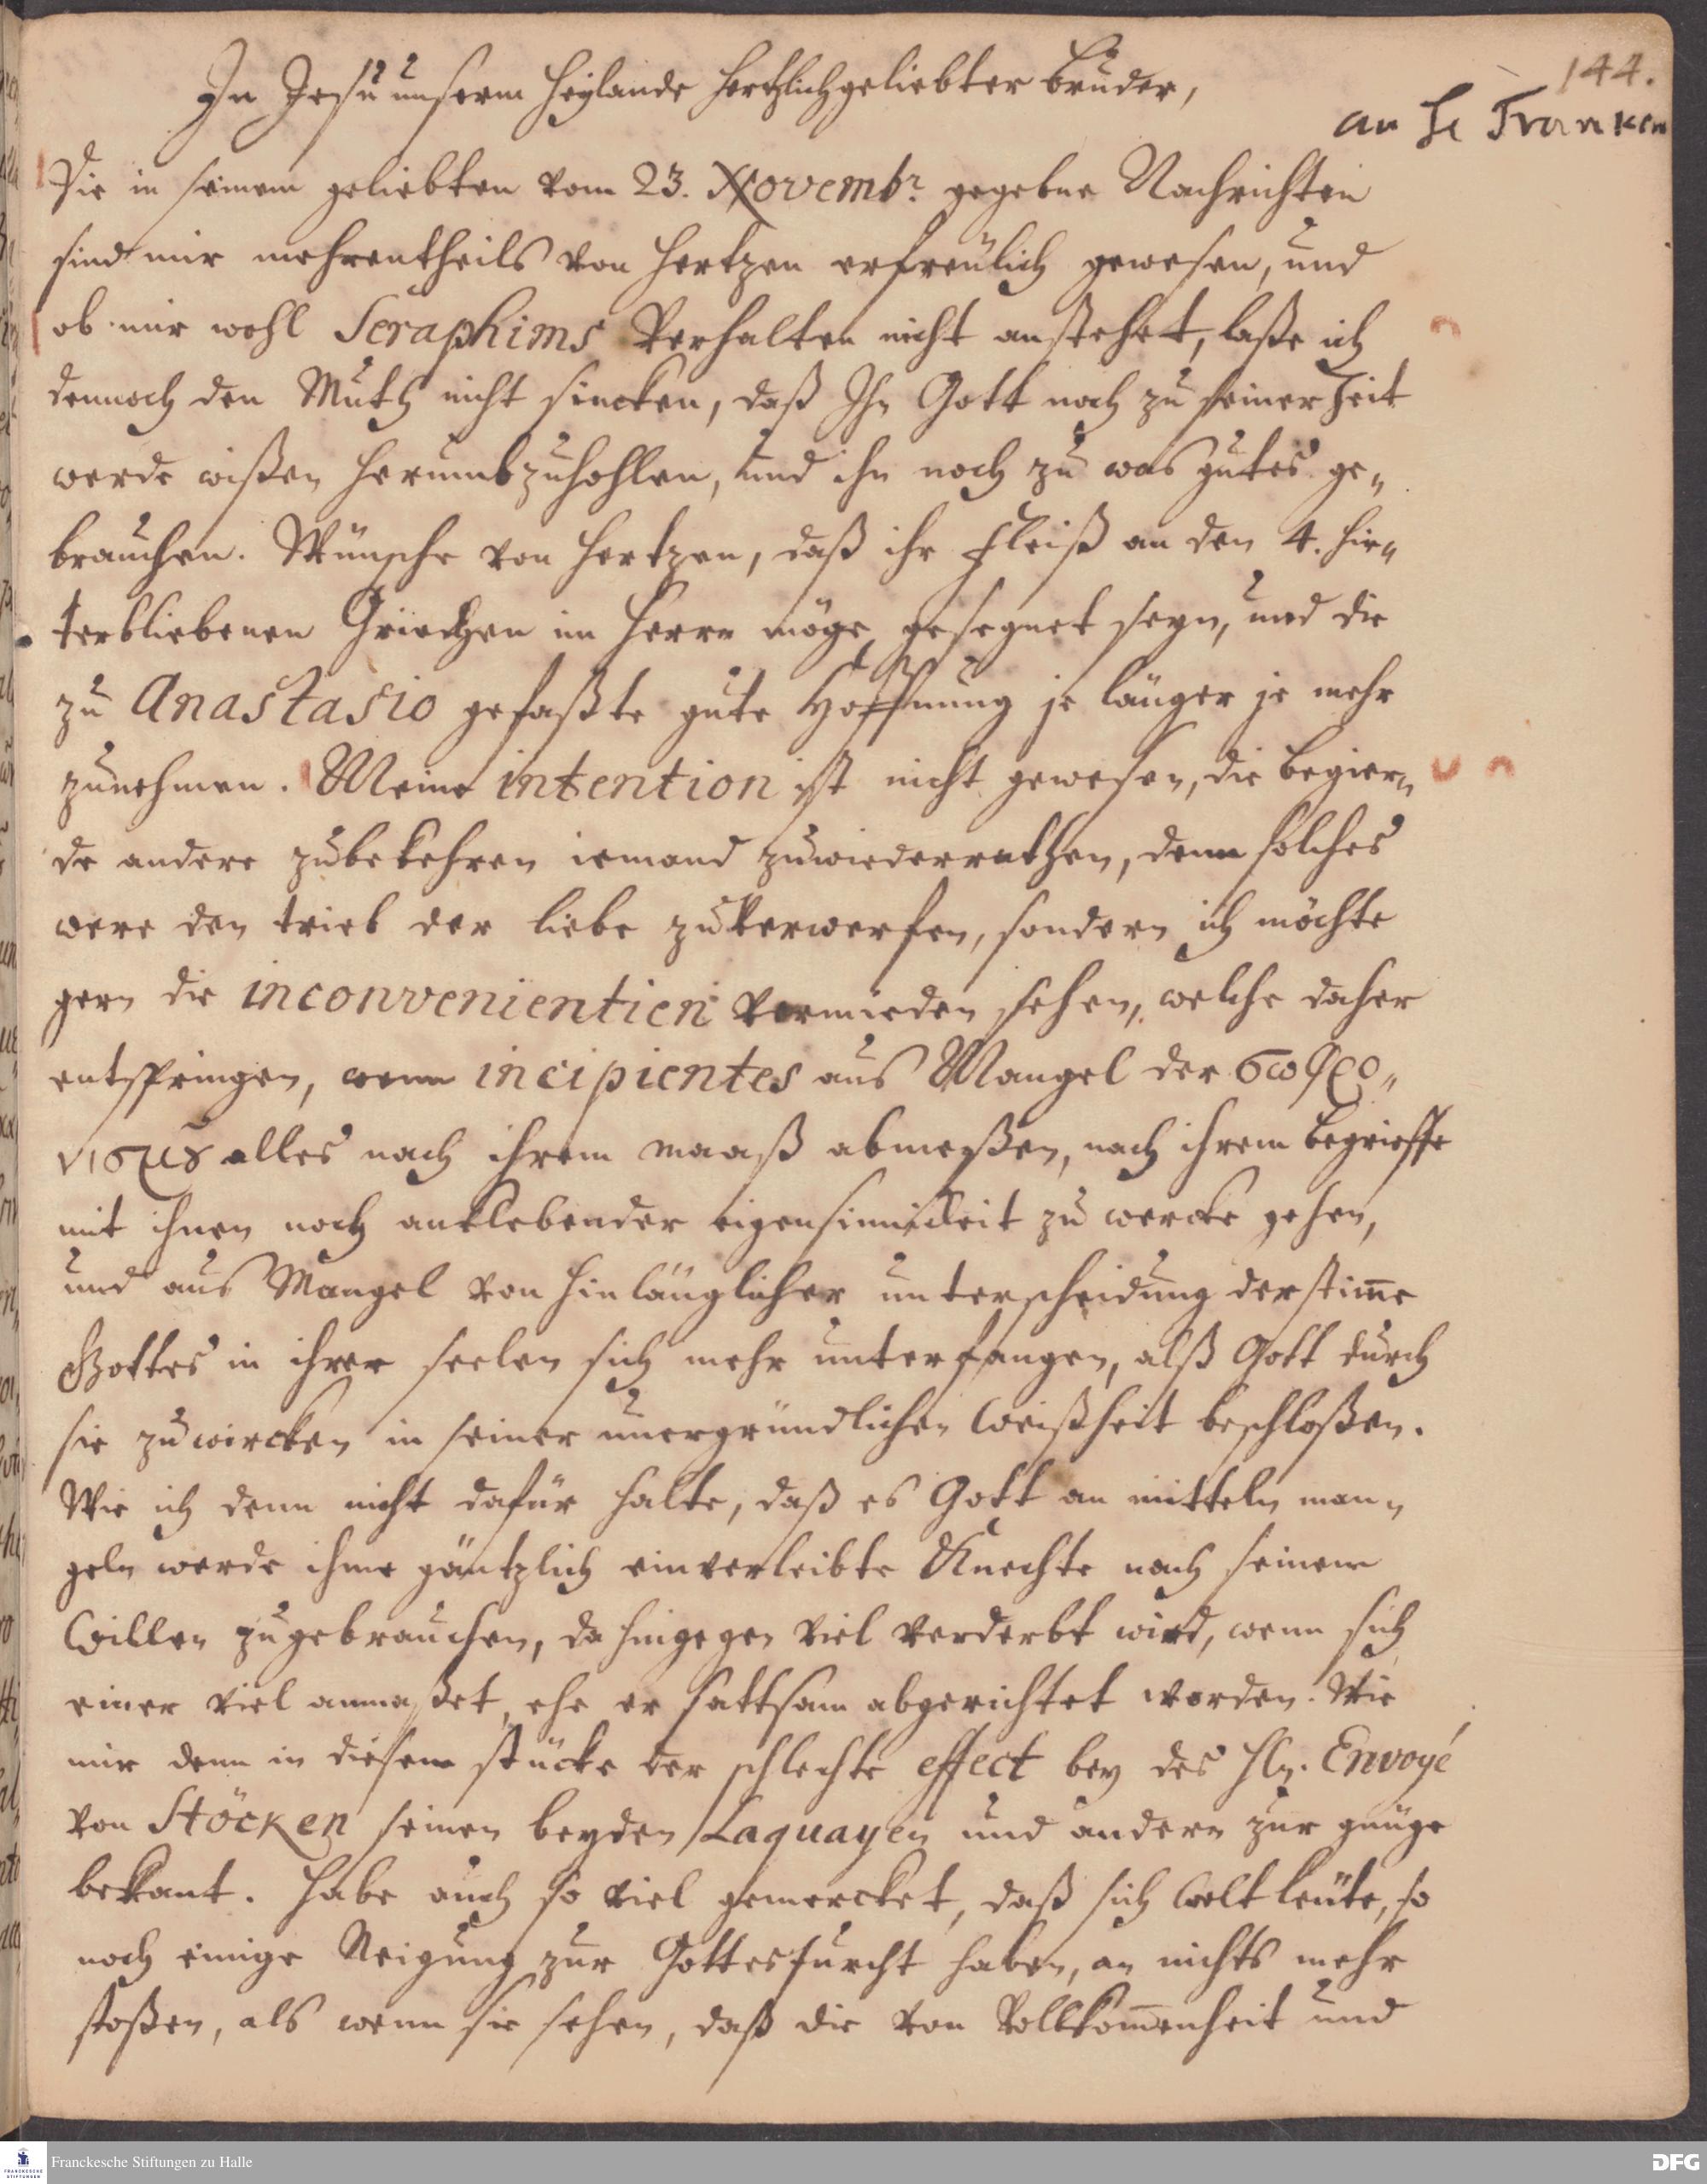 144.
In Jesu unserm Heylande hertzlichgeliebter Bruder,
an H Francken
Die in seinem geliebten vom 23. Novembr. gegebne Nachrichten
sind mir mehrentheils von Hertzen erfreulich gewesen, und
ob mir wohl Seraphims Verhalten nicht anstehet, laße ich
dennoch den Muth nicht sincken, daß Ihn Gott noch zu seiner Zeit
werde wißen herumbzuhohlen, und ihn noch zu was gutes ge„
brauchen. Wünsche von Hertzen, daß ihr Fleiß an den 4. hin„
terbliebenen Griechen im Herrn möge gesegnet seyn, und die
zu Anastasio gefaßte gute Hoffnung je länger je mehr
zunehmen. Meine intention ist nicht gewesen, die Begier„
de andere zubekehren iemand zuwiederrathen, denn solches
were den trieb der liebe zuverwerfen, sondern ich möchte
gern die inconvenientien vermieden sehen, welche daher
entspringen, wenn incipientes aus Mangel der σωφρο„
νισμȣ alles nach ihrem maaß abmeßen, nach ihrem Begrieffe
mit ihnen noch anklebender eigensinnickeit zu wercke gehen,
und aus Mangel von hinlänglicher unterscheidung der stim̄e
Gottes in ihrer seelen sich mehr unterfangen, alß Gott durch
sie zuwircken in seiner unergründlichen Weißheit beschloßen.
Wie ich denn nicht dafür halte, daß es Gott an mitteln man„
geln werde ihme gäntzlich einverleibte Knechte nach seinem
Willen zugebrauchen, da hingegen viel verderbt wird, wenn sich
einer viel anmaßet, ehe er sattsam abgerichtet worden. Wie
mir denn in diesem stücke der schlechte effect bey des Hln. Envoyé
von Stöcken seinen beyden Laquayen und andern zur gnüge
bekant. Habe auch so viel gemercket, daß sich Weltleute, so
noch einige Neigung zur Gottesfurcht haben, an nichts mehr
stoßen, als wenn sie sehen, daß die von Vollkom̄enheit und
Franckesche Stiftungen zu Halle
DFG